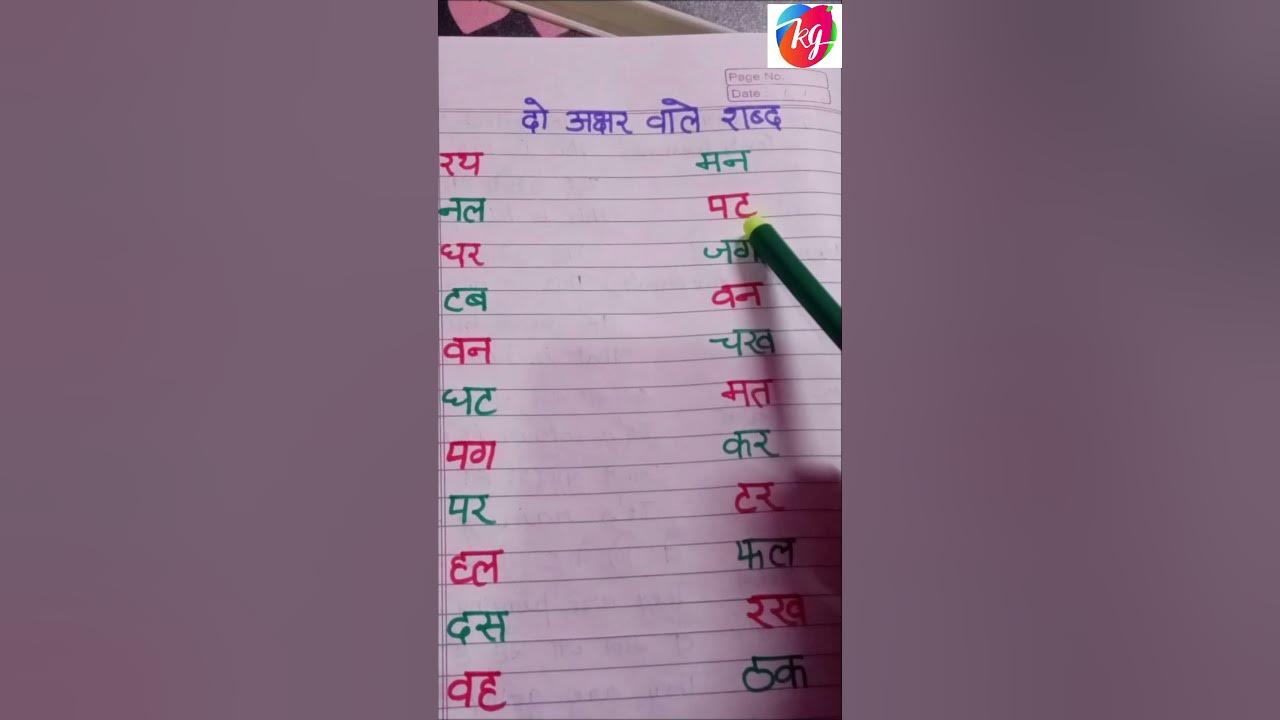 kg
Page No.
Date / /
दो अक्षर वाले शब्द
रथ मन
नल पट
घर जग
टब वन
वन चख
घट मत
पग कर
पर टर
हल फल
दस रख
वह ठक